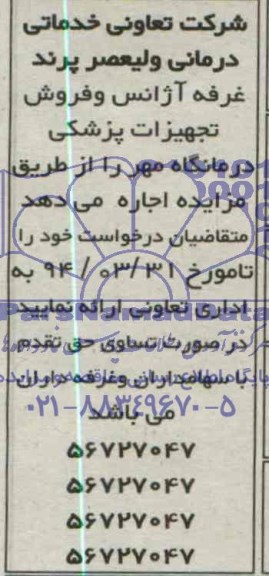 شرکت تعاونی خدماتی
درمانی ولیعصر پرند
غرفه آژانس وفروش
تجهیزات پزشکی
درمانگاه مهر را از طریق
مزایده اجاره می دهد
متقاضیان درخواست خود را
تامورخ ۹۴/۰۳/۳۱ به
اداری تعاونی ارائه نمایید
در صورت تساوی حق تقدم
با سهامداران وغرفه داران
می باشد
۰۲۱-۸۸۳۴۹۶۷۰-۵
۵۶۷۲۷۰۴۷
۵۶۷۲۷۰۴۷
۵۶۷۲۷۰۴۷
۵۶۷۲۷۰۴۷